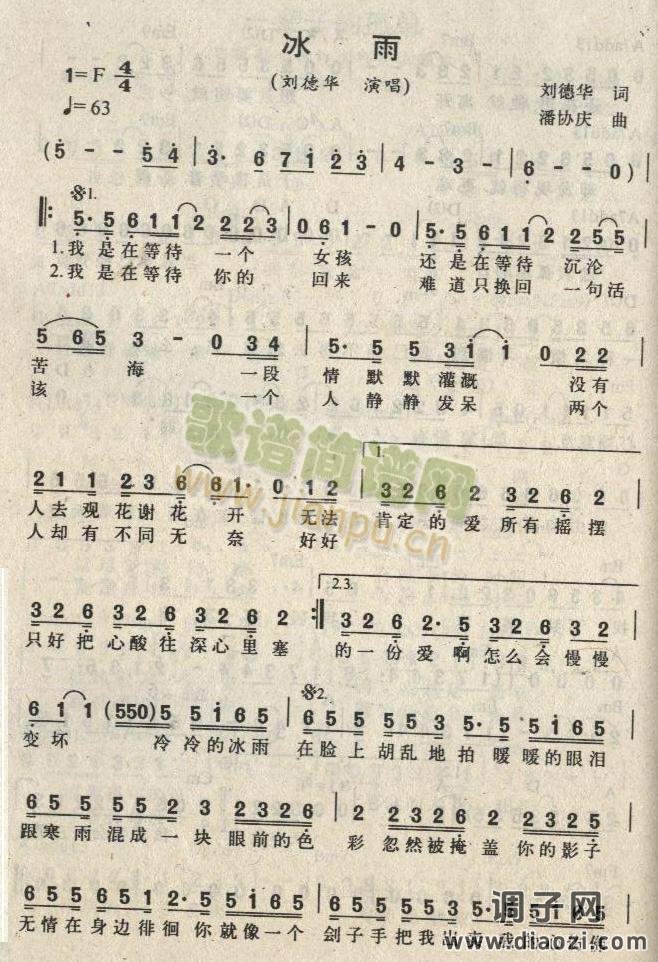 冰 雨
(刘德华 演唱)
1=F 4/4
♩=63
刘德华 词
潘协庆 曲
(5 - - 5 4 | 3· 6 7 1 2 3 | 4 - 3 - | 6 - - 0)
𝄋1.
5· 5 6 1 1 2 2 2 3 | 0 6 1 - 0 | 5· 5 6 1 1 2 2 5 5 |
1.我 是在等待 一个 女孩 还 是在等待 沉沦
2.我 是在等待 你的 回来 难 道只换回 一句活
5 6 5 3 - 0 3 4 | 5· 5 5 5 3 1 1 0 2 2 |
苦 海 一段 情 默默灌溉 没有
该 一个 人 静静发呆 两个
1.
2 1 1 2 3 6 6 1· 0 1 2 | 3 2 6 2 3 2 6 2 |
人去观花谢花 开 无法 肯定的爱所有摇摆
人却有不同无 奈 好好
2.3.
3 2 6 3 2 6 3 2 6 2 :‖ 3 2 6 2· 5 3 2 6 3 2 |
只好把心酸往深心里塞 的一份爱啊怎么会慢慢
𝄋2.
6 1 1 (550) 5 5 1 6 5 | 6 5 5 5 5 3 5· 5 5 1 6 5 |
变坏 冷冷的冰雨 在脸上胡乱地拍 暖暖的眼泪
6 5 5 5 5 2 3 2 3 2 6 | 2 2 3 2 6 2 2 3 2 5 |
跟寒雨混成一块 眼前的色 彩 忽然被掩盖 你的影子
6 5 5 5 6 5 1 2· 5 5 1 6 5
无情在身边徘徊 你就像一个 刽子手把我出
歌谱简谱网
www.jianpu.cn
调子网
www.diaozi.com